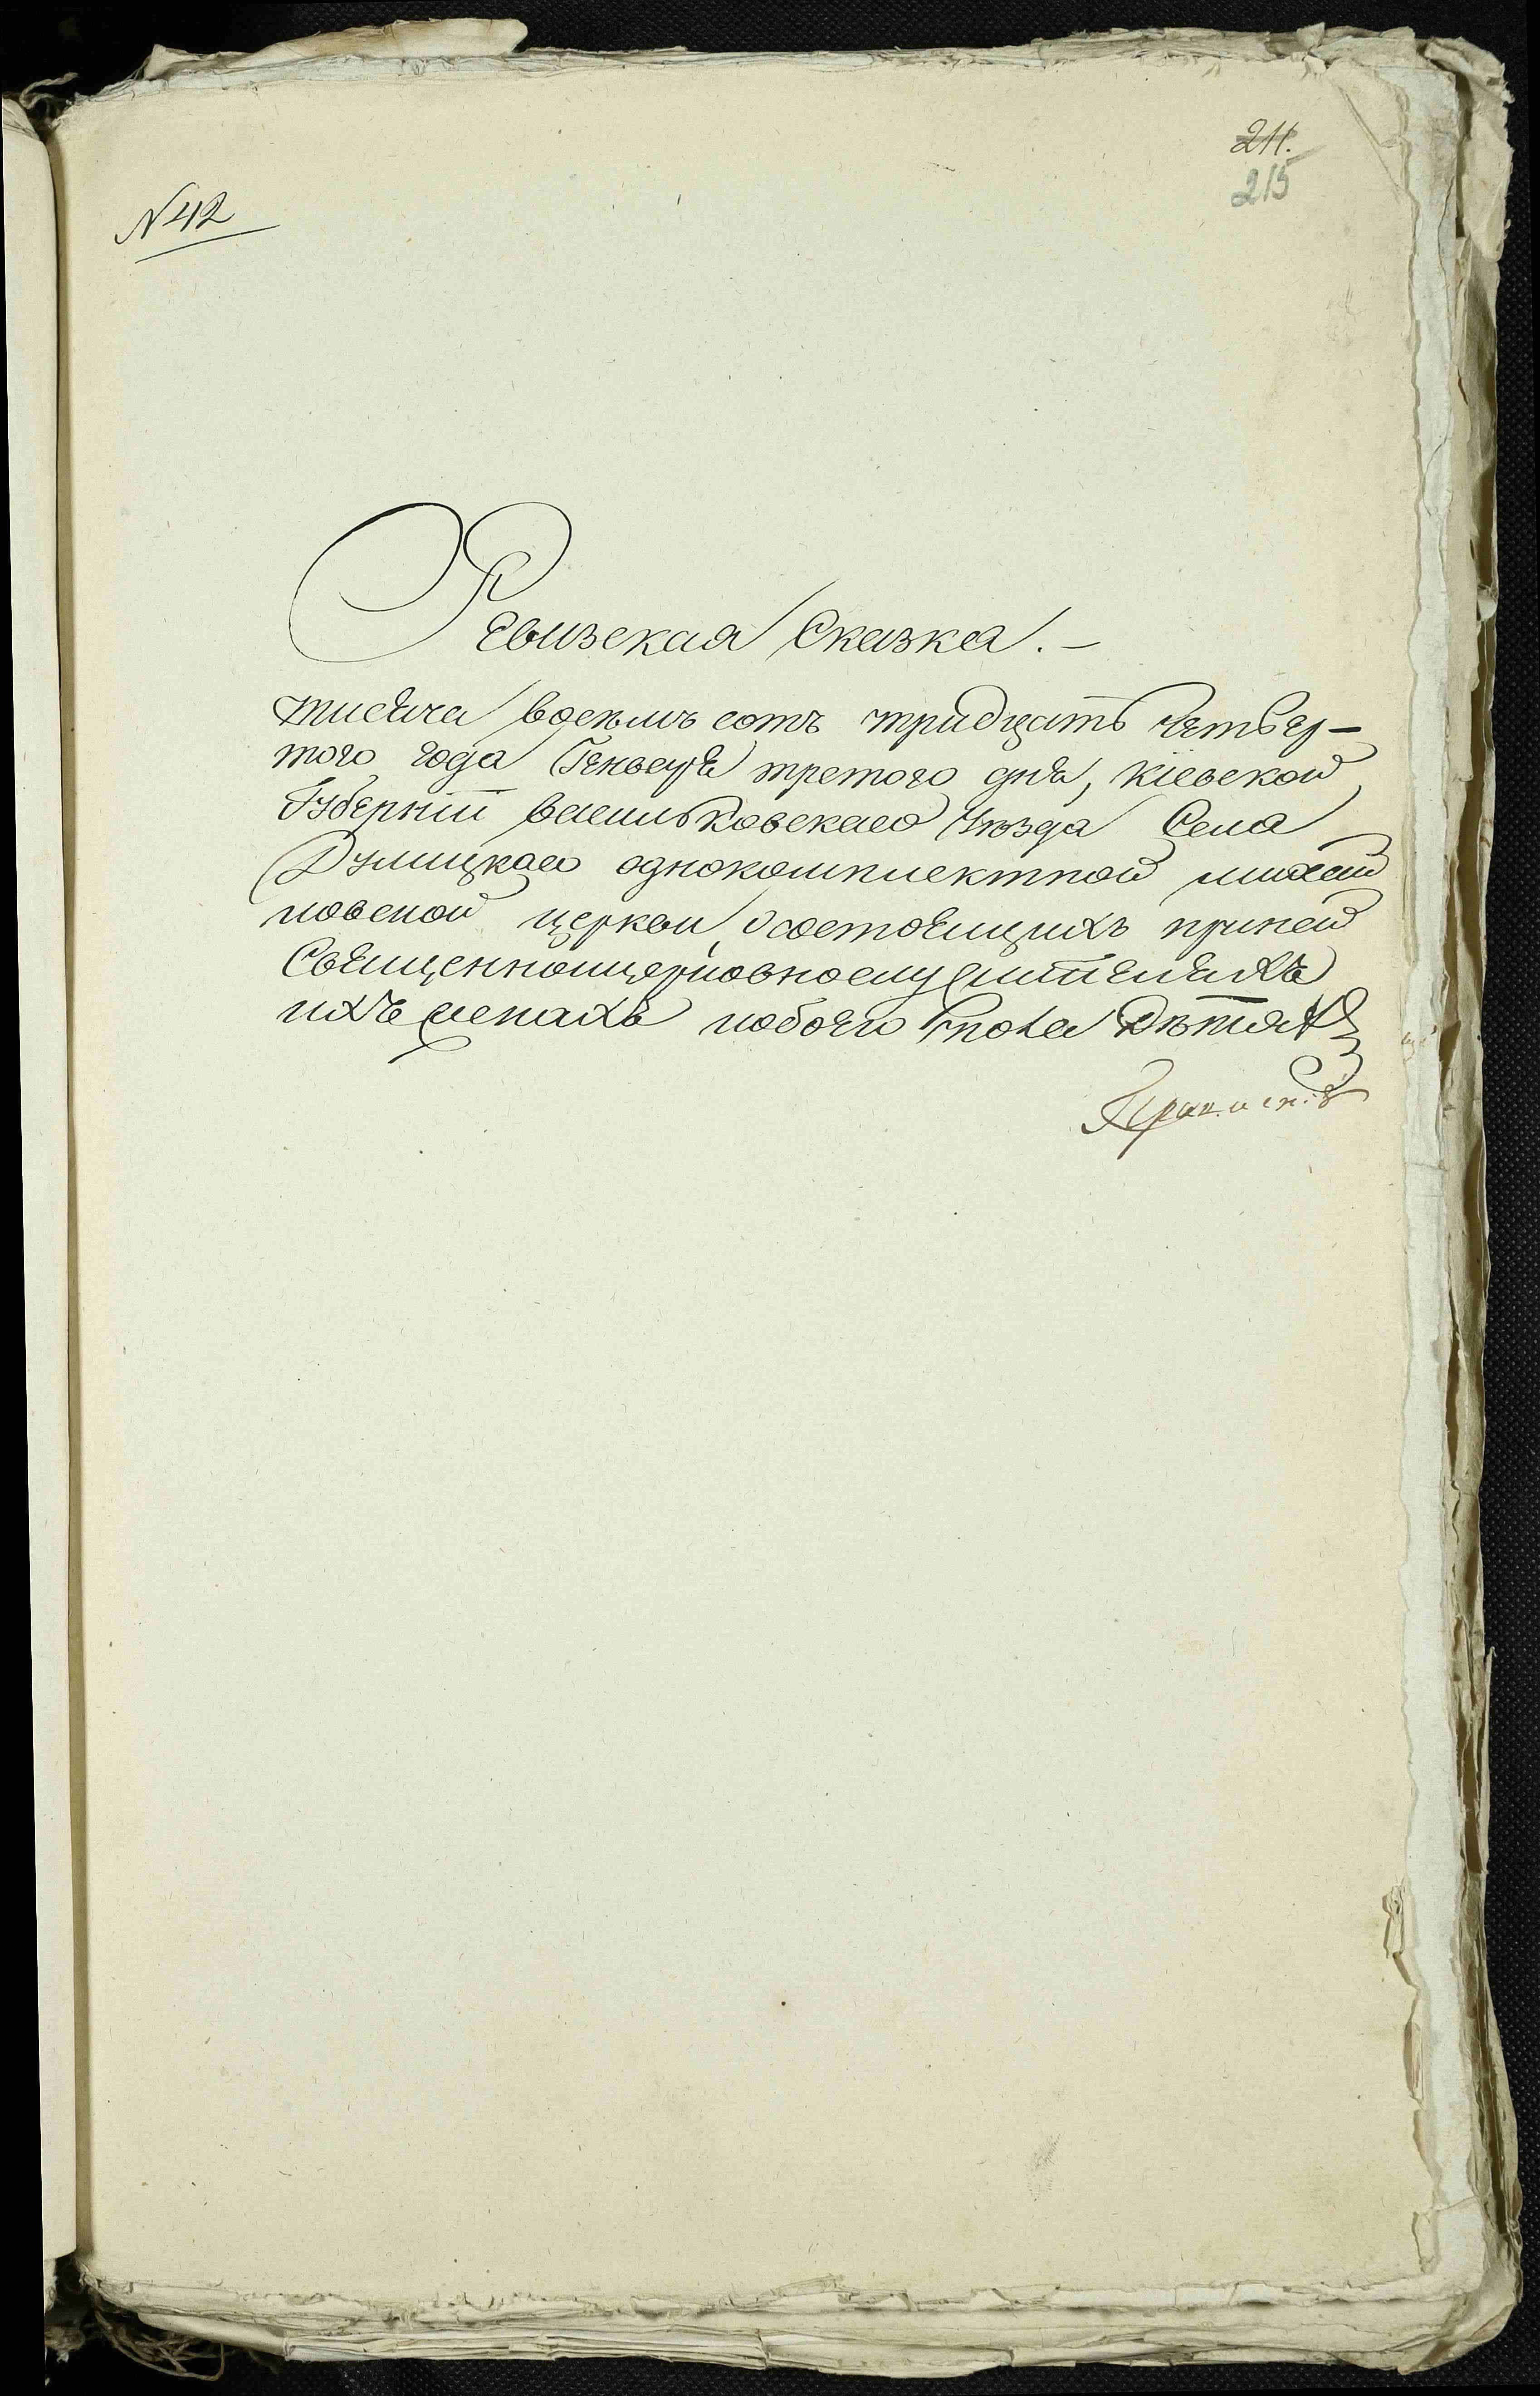 211.
215
N 42
Ревизская Сказка. —
тисяча восѣмъ сотъ тридцать Четьвер-
того года Генвара третого дня, Кіевской
Губерніи василЬковскаго Уѣзда Села
Дулицкаго однокомплектной михаи
ловской церкви, о состоящихъ приней
Священноицерковнослужителяхъ
ихъ женахъ иобоего пола Дѣтяхъ